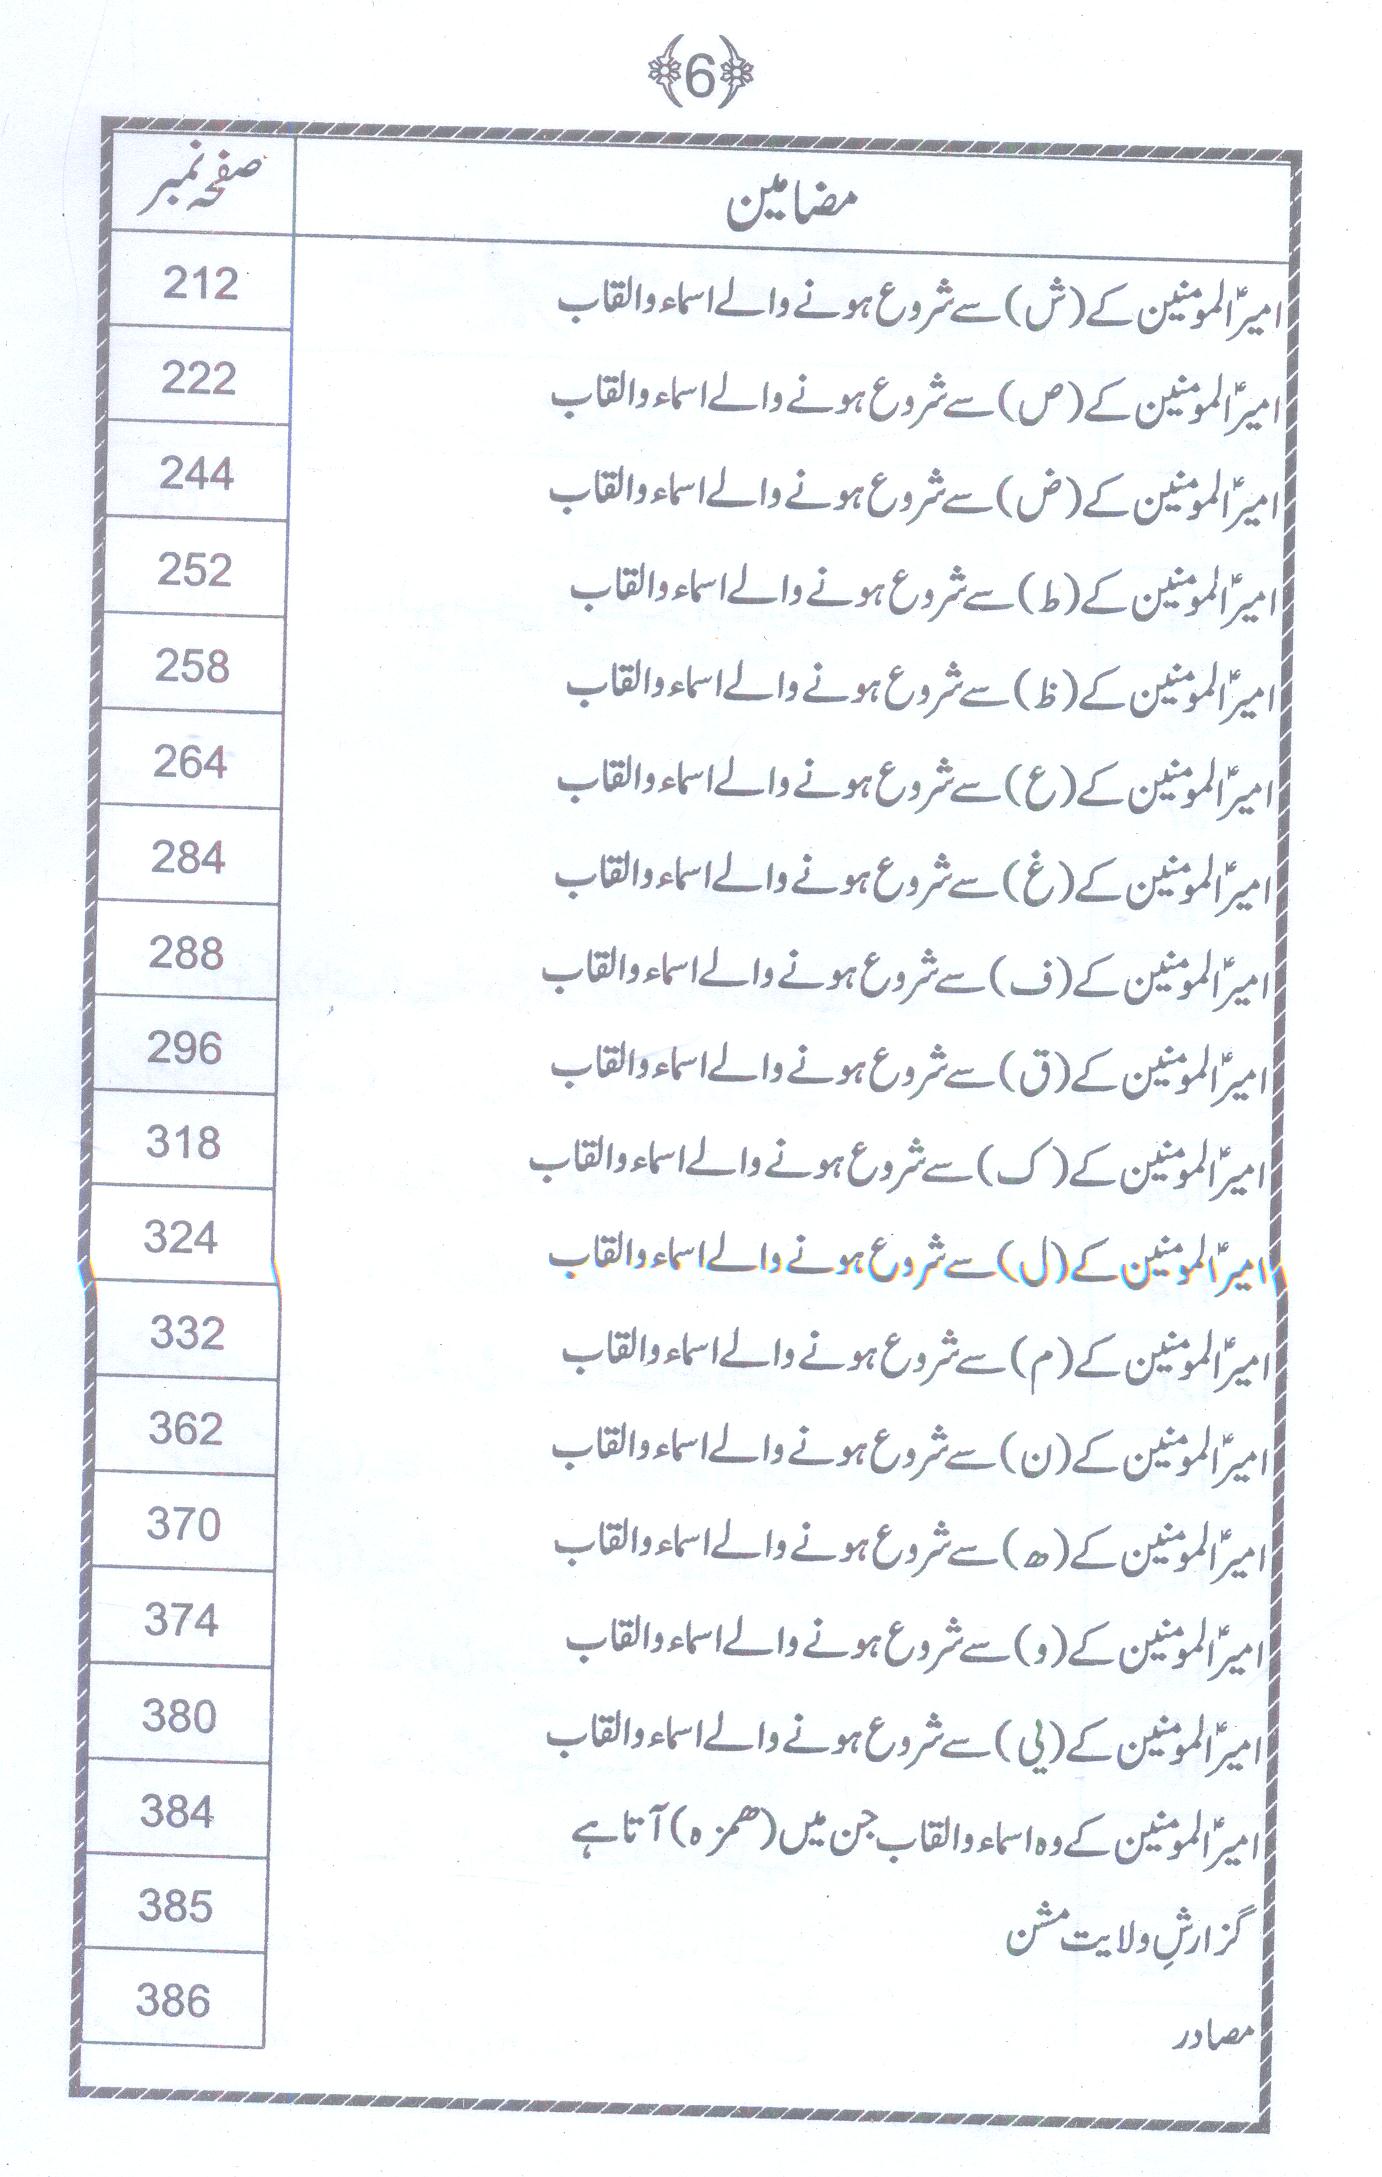 6
مضامین صفحہ نمبر
امیرؑالمومنین کے (ش) سے شروع ہونے والے اسماء والقاب 212
امیرؑالمومنین کے (ص) سے شروع ہونے والے اسماء والقاب 222
امیرؑالمومنین کے (ض) سے شروع ہونے والے اسماء والقاب 244
امیرؑالمومنین کے (ط) سے شروع ہونے والے اسماء والقاب 252
امیرؑالمومنین کے (ظ) سے شروع ہونے والے اسماء والقاب 258
امیرؑالمومنین کے (ع) سے شروع ہونے والے اسماء والقاب 264
امیرؑالمومنین کے (غ) سے شروع ہونے والے اسماء والقاب 284
امیرؑالمومنین کے (ف) سے شروع ہونے والے اسماء والقاب 288
امیرؑالمومنین کے (ق) سے شروع ہونے والے اسماء والقاب 296
امیرؑالمومنین کے (ک) سے شروع ہونے والے اسماء والقاب 318
امیرؑالمومنین کے (ل) سے شروع ہونے والے اسماء والقاب 324
امیرؑالمومنین کے (م) سے شروع ہونے والے اسماء والقاب 332
امیرؑالمومنین کے (ن) سے شروع ہونے والے اسماء والقاب 362
امیرؑالمومنین کے (ھ) سے شروع ہونے والے اسماء والقاب 370
امیرؑالمومنین کے (و) سے شروع ہونے والے اسماء والقاب 374
امیرؑالمومنین کے (یی) سے شروع ہونے والے اسماء والقاب 380
امیرؑالمومنین کے وہ اسماء والقاب جن میں (ھمزہ) آتا ہے 384
گزارشِ ولایت مشن 385
مصادر 386